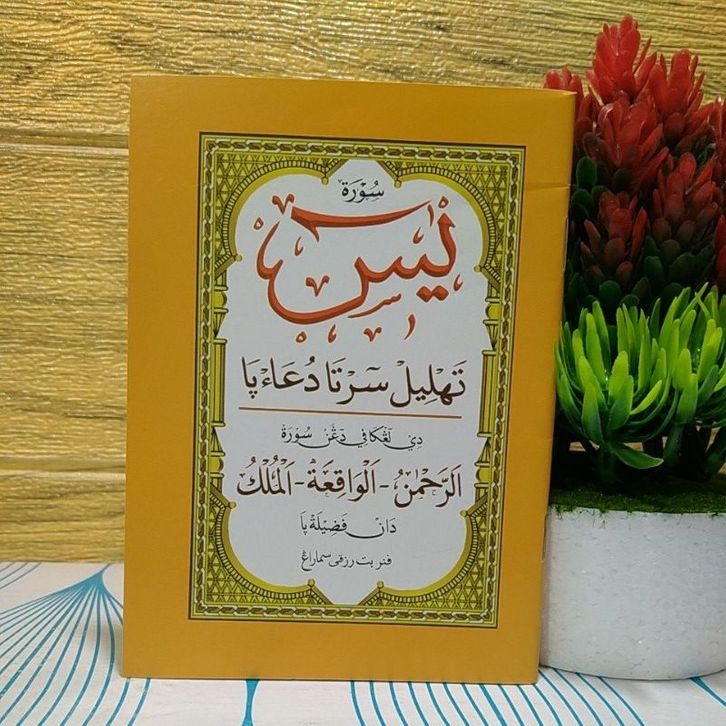 سُوْرَةُ
يٰسٓ
تَهْلِيْل سَرْتَا دُعَاءپَا
دِي لَڠْكَافِي دَڠَنْ سُوْرَةْ
اَلرَّحْمٰنُ - اَلْوَاقِعَةْ - اَلْمُلْكُ
دَانْ فَضِيْلَةْ پَا
فنربت رزقى سماراڠ